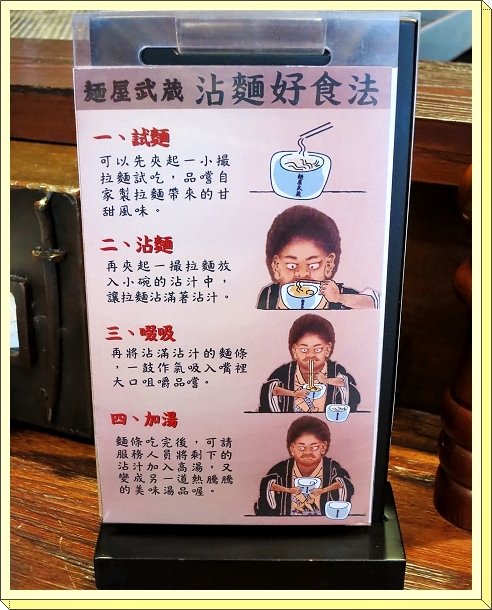 麵屋武蔵 沾麵好食法
一、試麵
可以先夾起一小撮
拉麵試吃，品嚐自
家製拉麵帶來的甘
甜風味。
麵屋武蔵
二、沾麵
再夾起一撮拉麵放
入小碗的沾汁中，
讓拉麵沾滿著沾汁。
三、啜吸
再將沾滿沾汁的麵條
，一鼓作氣吸入嘴裡
大口咀嚼品嚐。
四、加湯
麵條吃完後，可請
服務人員將剩下的
沾汁加入高湯，又
變成另一道熱騰騰
的美味湯品喔。